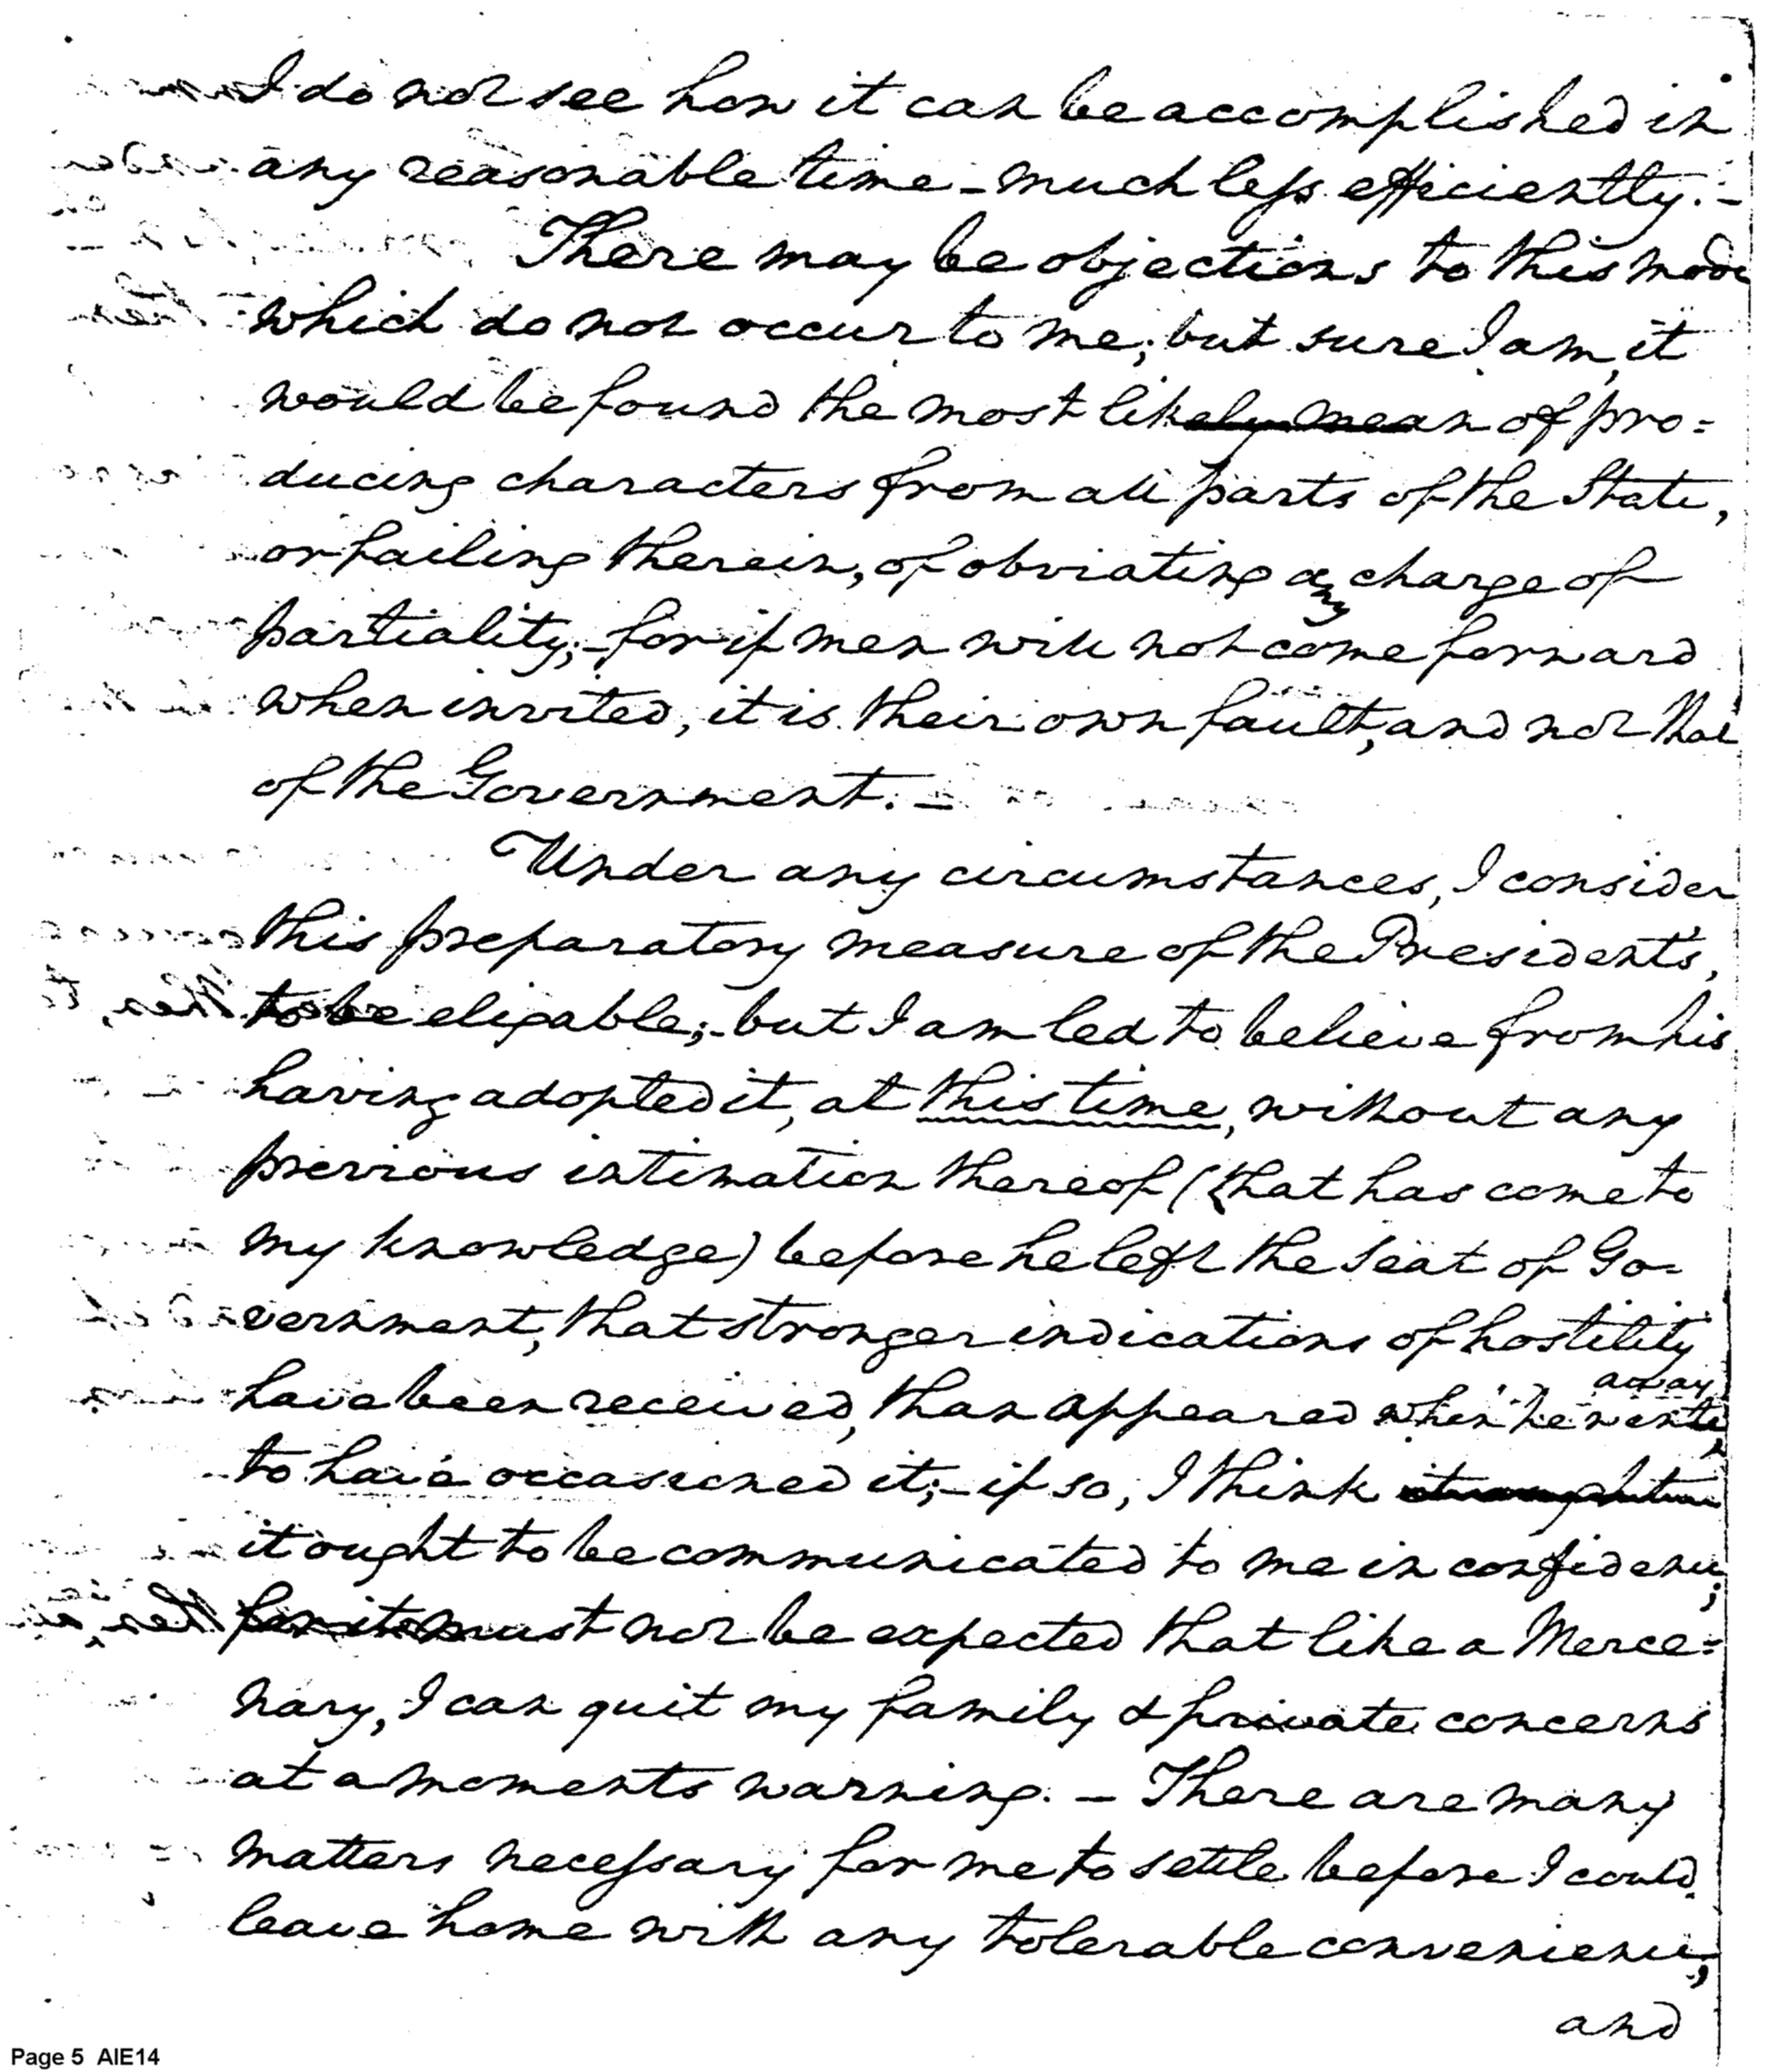 I do not see how it can be accomplished in
any reasonable time – much less efficiently. –
There may be objections to this mode
which do not occur to me; but sure I am, it
would be found the most likely mean of pro=
ducing characters from all parts of the State,
or failing therein, of obviating any charge of
partiality; – for if men will not come forward
when invited, it is their own fault, and not that
of the Government. –
Under any circumstances, I consider
this preparatory measure of the President's,
to be eligable; – but I am led to believe from his
having adopted it, at this time, without any
previous intimation thereof (that has come to
my knowledge) before he left the Seat of Go=
vernment, that stronger indications of hostility
have been received, than appeared when he went away,
to have occasioned it; – if so, I think
it ought to be communicated to me in confidence;
for it must not be expected that like a Merce=
nary, I can quit my family & private concerns
at a moments warning. – There are many
matters necessary for me to settle before I could
leave home with any tolerable convenience;
and
Page 5 AIE14